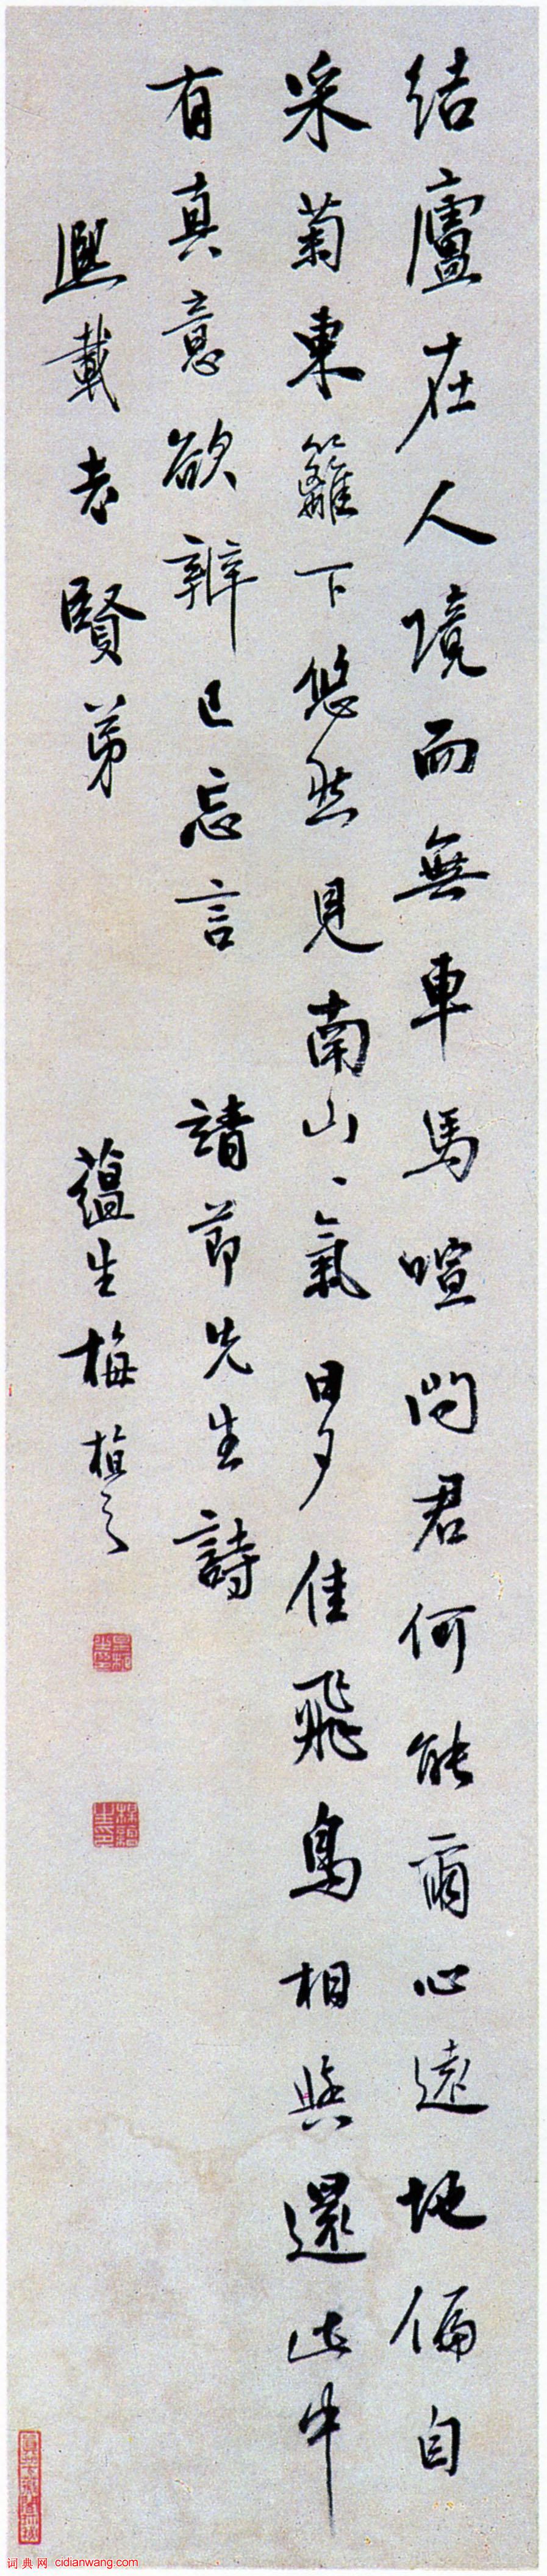 結廬在人境而無車馬喧問君何能爾心遠地偏自
采菊東籬下悠然見南山〻氣日夕佳飛鳥相與還此中
有真意欲辨已忘言　靖節先生詩
熙載老賢弟　蘊生梅植之
词典网 cidianwang.com